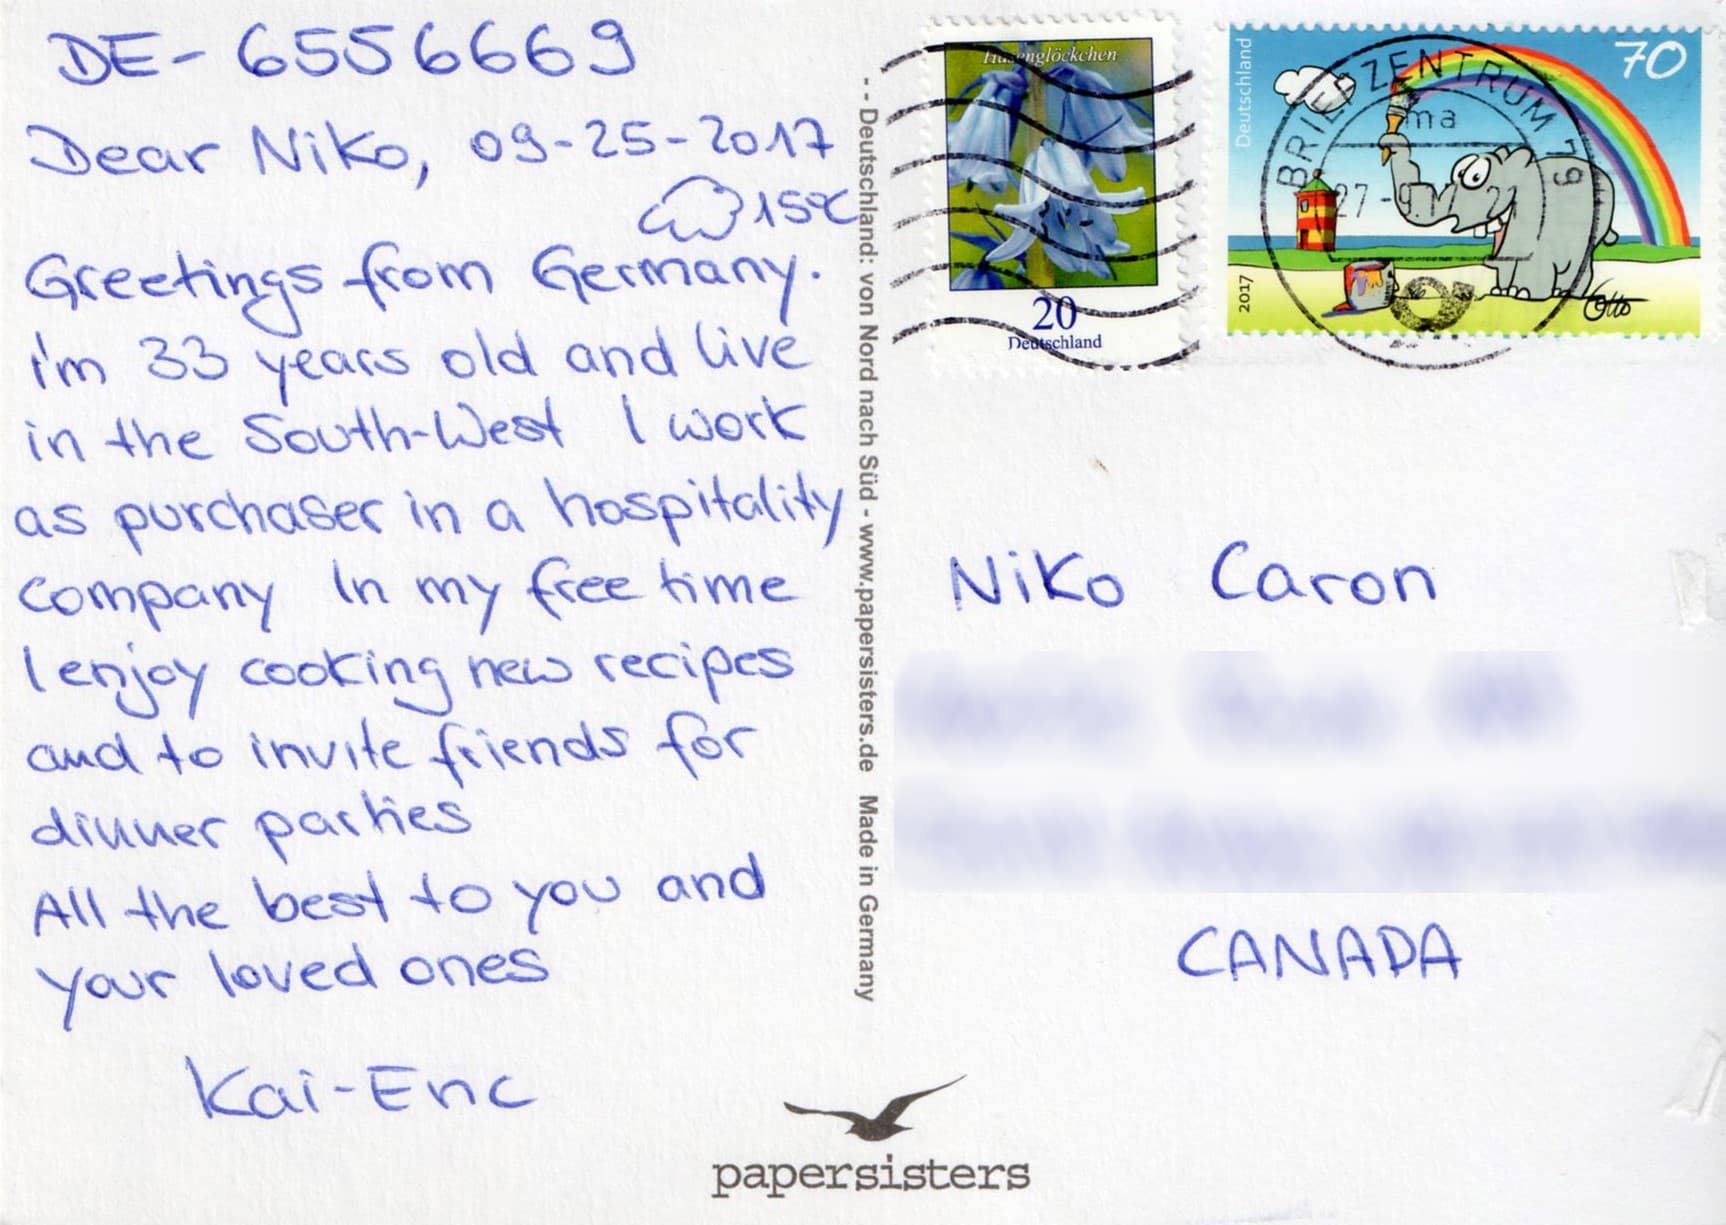 DE-6556669
Dear Niko, 09-25-2017
15°C
Greetings from Germany.
I'm 33 years old and live
in the South-West I work
as purchaser in a hospitality
company In my free time
I enjoy cooking new recipes
and to invite friends for
dinner parties
All the best to you and
your loved ones
Kai-Eric
-- Deutschland: von Nord nach Süd - www.papersisters.de Made in Germany
Hasenglöckchen
20
Deutschland
Deutschland
70
2017
Otto
BRIEFZENTRUM 79
ma
27-9.17
Niko Caron
CANADA
papersisters